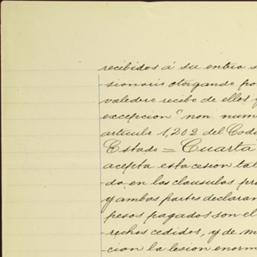 recibidos á su entra s
sionario otorgando po
valedero recibo de ellos y
excepcion "non num
artículo 1,202 del Cod
Estado = Cuarta
acepta esta cesion tal
da en las clausulas pre
y ambas partes declaran
pesos pagados son el
rechos cedidos, y de m
cion la lesion enorm